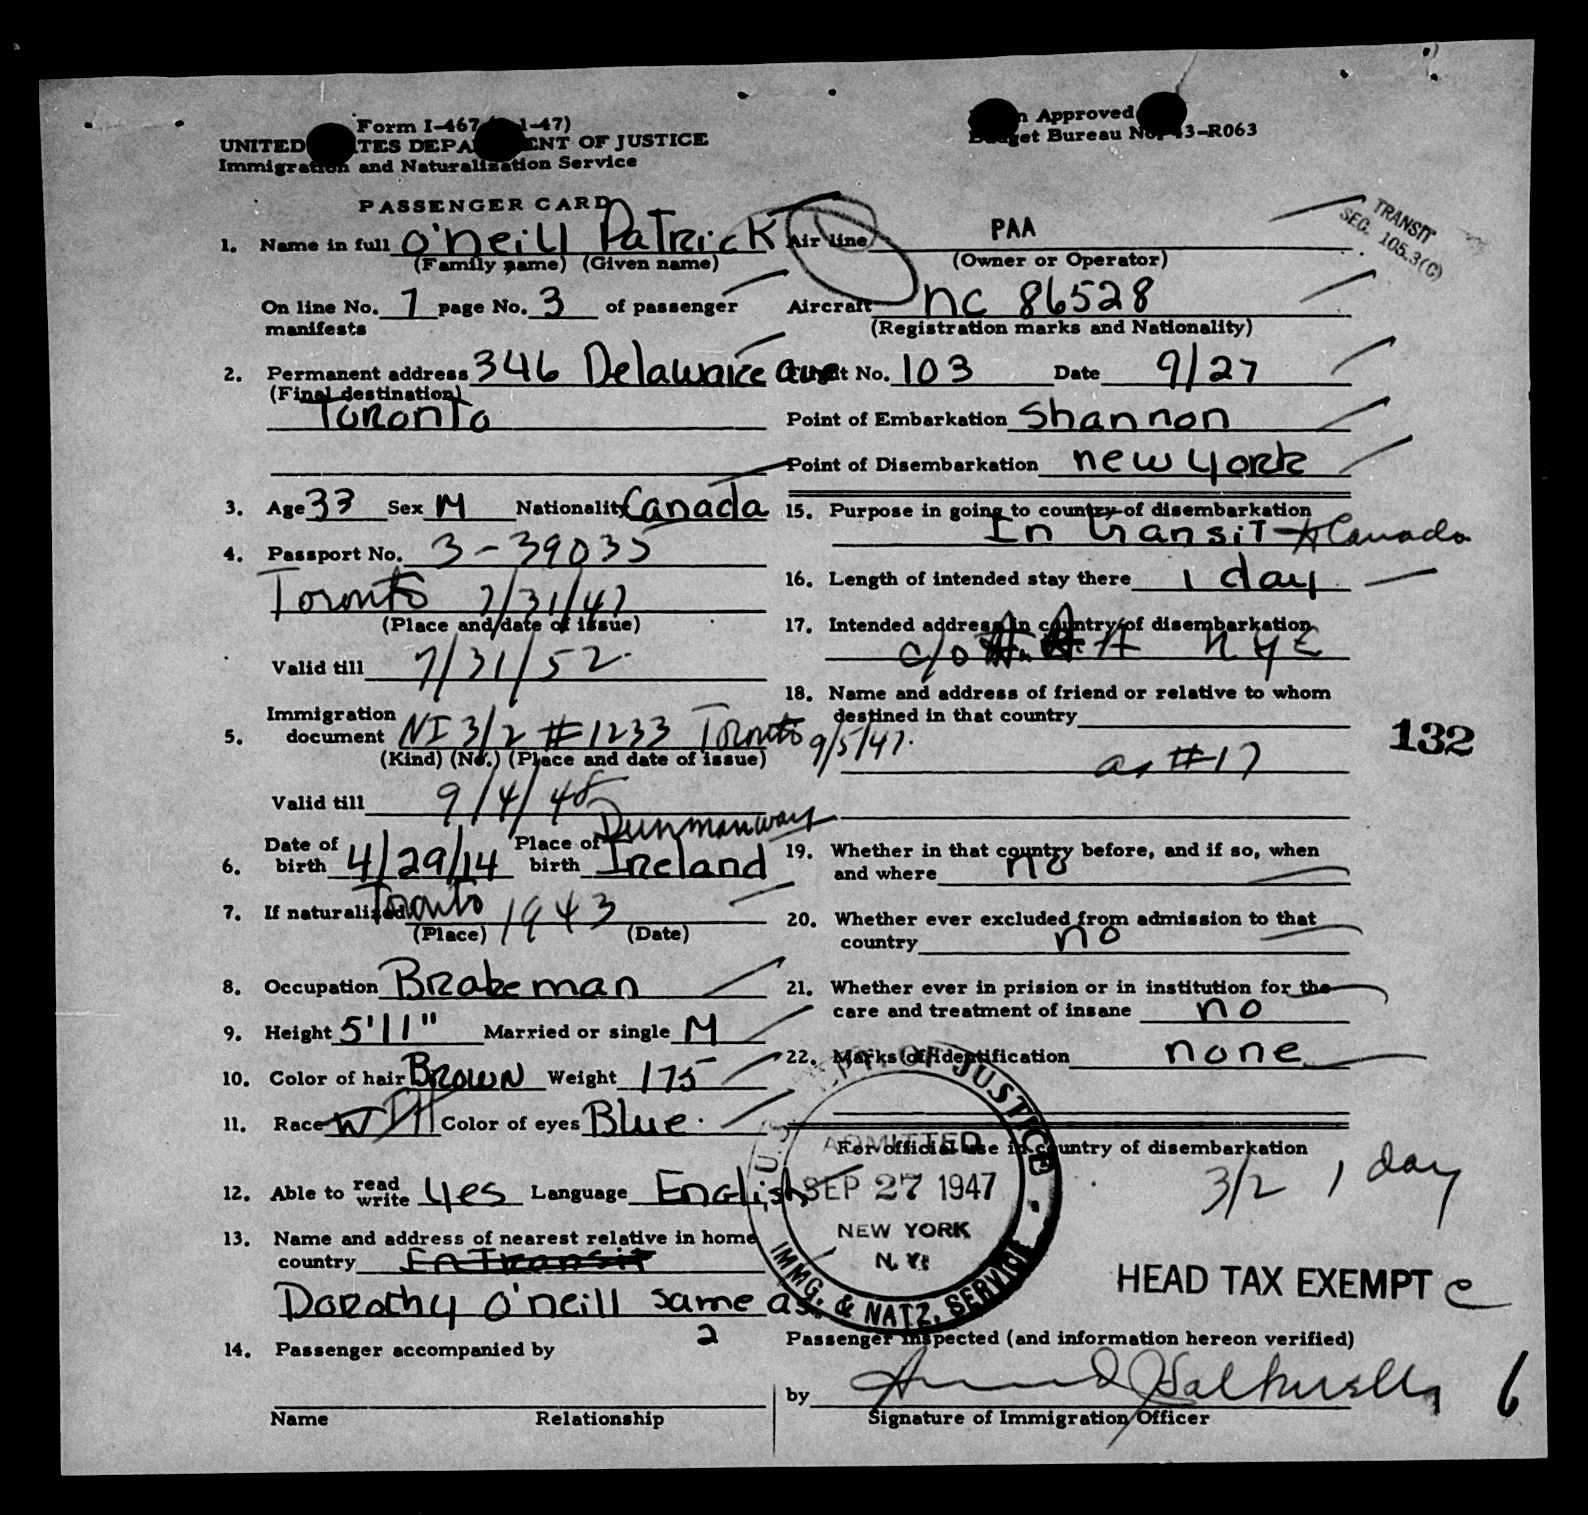 Form I-467 1-47)
UNITED TES DEPA ENT OF JUSTICE
Immigration and Naturalization Service
n Approved
Budget Bureau No. 43-R063
PASSENGER CARD
TRANSIT
SEC. 105.3(C)
1. Name in full O'Neill Patrick
(Family name) (Given name)
On line No. 7 page No. 3 of passenger
manifests
2. Permanent address 346 Delaware ave
(Final destination)
Toronto
3. Age 33 Sex M Nationality Canada
4. Passport No. 3-39035
Toronto 7/31/47
(Place and date of issue)
Valid till 7/31/52
Immigration
5. document NI 3/2 #1233 Toronto 9/5/47.
(Kind) (No.) (Place and date of issue)
Valid till 9/4/48
Dunmanway
6. Date of birth 4/29/14 Place of birth Ireland
7. If naturalized Toronto 1943
(Place) (Date)
8. Occupation Brakeman
9. Height 5'11" Married or single M
10. Color of hair Brown Weight 175
11. Race W Color of eyes Blue.
12. Able to read write yes Language English
13. Name and address of nearest relative in home
country In Transit
Dorothy O'neill same as
2
14. Passenger accompanied by
Name Relationship
Air line PAA
(Owner or Operator)
Aircraft NC 86528
(Registration marks and Nationality)
Flight No. 103 Date 9/27
Point of Embarkation Shannon
Point of Disembarkation new york
15. Purpose in going to country of disembarkation
In transit to Canada
16. Length of intended stay there 1 day
17. Intended address in country of disembarkation
c/o NYC
18. Name and address of friend or relative to whom
destined in that country
as #17
132
19. Whether in that country before, and if so, when
and where no
20. Whether ever excluded from admission to that
country no
21. Whether ever in prision or in institution for the
care and treatment of insane no
22. Marks of Identification none
For official use in country of disembarkation
3/2 1 day
U.S. DEPT. OF JUSTICE
ADMITTED
SEP 27 1947
NEW YORK
N.Y.
IMMG. & NATZ. SERVICE
HEAD TAX EXEMPT
Passenger inspected (and information hereon verified)
by
Signature of Immigration Officer
6